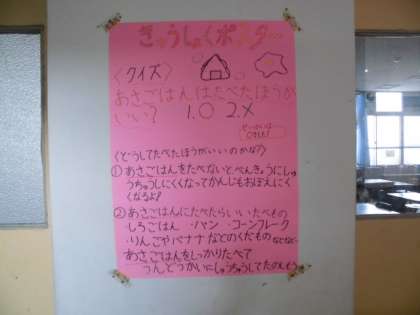 きゅうしょくポスター
〈クイズ〉
あさごはんはたべたほうが
いい？ 1.○ 2.×
せいかいは
〈どうしてたべたほうがいいのかな?〉
①あさごはんをたべないと、べんきょうにしゅ
うちゅうしにくくなってかんじもおぼえにく
くなるよ!
②あさごはんにたべたらいいたべもの
・しろごはん ・パン ・コーンフレーク
・りんごやバナナなどのくだもの などなど…
あさごはんをしっかりたべて
しゅうちゅうしてたのしもう